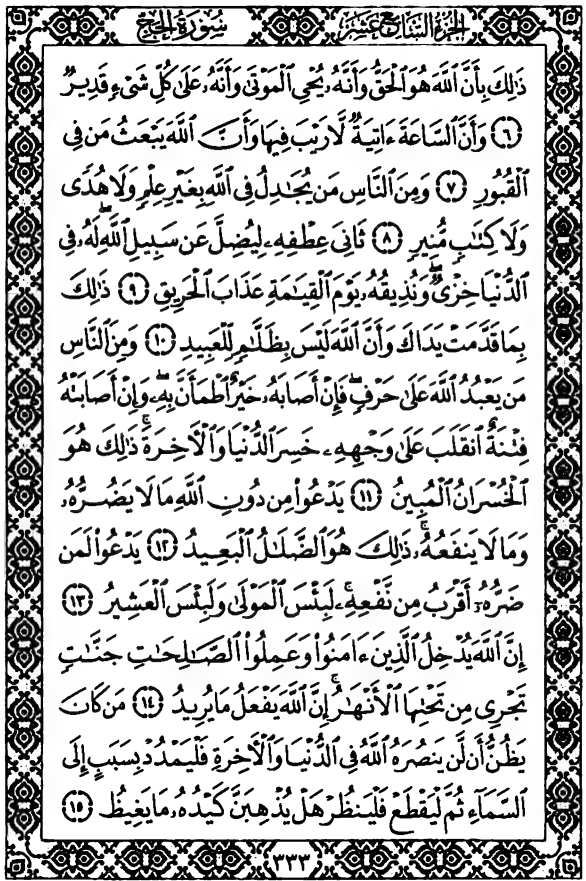 الجزء السابع عشر سورة الحج
ذَٰلِكَ بِأَنَّ ٱللَّهَ هُوَ ٱلْحَقُّ وَأَنَّهُۥ يُحْىِ ٱلْمَوْتَىٰ وَأَنَّهُۥ عَلَىٰ كُلِّ شَىْءٍ قَدِيرٌ
٦ وَأَنَّ ٱلسَّاعَةَ ءَاتِيَةٌ لَّا رَيْبَ فِيهَا وَأَنَّ ٱللَّهَ يَبْعَثُ مَن فِى
ٱلْقُبُورِ ٧ وَمِنَ ٱلنَّاسِ مَن يُجَٰدِلُ فِى ٱللَّهِ بِغَيْرِ عِلْمٍ وَلَا هُدًى
وَلَا كِتَٰبٍ مُّنِيرٍ ٨ ثَانِىَ عِطْفِهِۦ لِيُضِلَّ عَن سَبِيلِ ٱللَّهِ ۖ لَهُۥ فِى
ٱلدُّنْيَا خِزْىٌ ۖ وَنُذِيقُهُۥ يَوْمَ ٱلْقِيَٰمَةِ عَذَابَ ٱلْحَرِيقِ ٩ ذَٰلِكَ
بِمَا قَدَّمَتْ يَدَاكَ وَأَنَّ ٱللَّهَ لَيْسَ بِظَلَّٰمٍ لِّلْعَبِيدِ ١٠ وَمِنَ ٱلنَّاسِ
مَن يَعْبُدُ ٱللَّهَ عَلَىٰ حَرْفٍ ۖ فَإِنْ أَصَابَهُۥ خَيْرٌ ٱطْمَأَنَّ بِهِۦ ۖ وَإِنْ أَصَابَتْهُ
فِتْنَةٌ ٱنقَلَبَ عَلَىٰ وَجْهِهِۦ خَسِرَ ٱلدُّنْيَا وَٱلْءَاخِرَةَ ۚ ذَٰلِكَ هُوَ
ٱلْخُسْرَانُ ٱلْمُبِينُ ١١ يَدْعُوا۟ مِن دُونِ ٱللَّهِ مَا لَا يَضُرُّهُۥ
وَمَا لَا يَنفَعُهُۥ ۚ ذَٰلِكَ هُوَ ٱلضَّلَٰلُ ٱلْبَعِيدُ ١٢ يَدْعُوا۟ لَمَن
ضَرُّهُۥٓ أَقْرَبُ مِن نَّفْعِهِۦ ۚ لَبِئْسَ ٱلْمَوْلَىٰ وَلَبِئْسَ ٱلْعَشِيرُ ١٣
إِنَّ ٱللَّهَ يُدْخِلُ ٱلَّذِينَ ءَامَنُوا۟ وَعَمِلُوا۟ ٱلصَّٰلِحَٰتِ جَنَّٰتٍ
تَجْرِى مِن تَحْتِهَا ٱلْأَنْهَٰرُ ۚ إِنَّ ٱللَّهَ يَفْعَلُ مَا يُرِيدُ ١٤ مَن كَانَ
يَظُنُّ أَن لَّن يَنصُرَهُ ٱللَّهُ فِى ٱلدُّنْيَا وَٱلْءَاخِرَةِ فَلْيَمْدُدْ بِسَبَبٍ إِلَى
ٱلسَّمَآءِ ثُمَّ لْيَقْطَعْ فَلْيَنظُرْ هَلْ يُذْهِبَنَّ كَيْدُهُۥ مَا يَغِيظُ ١٥
٣٣٣